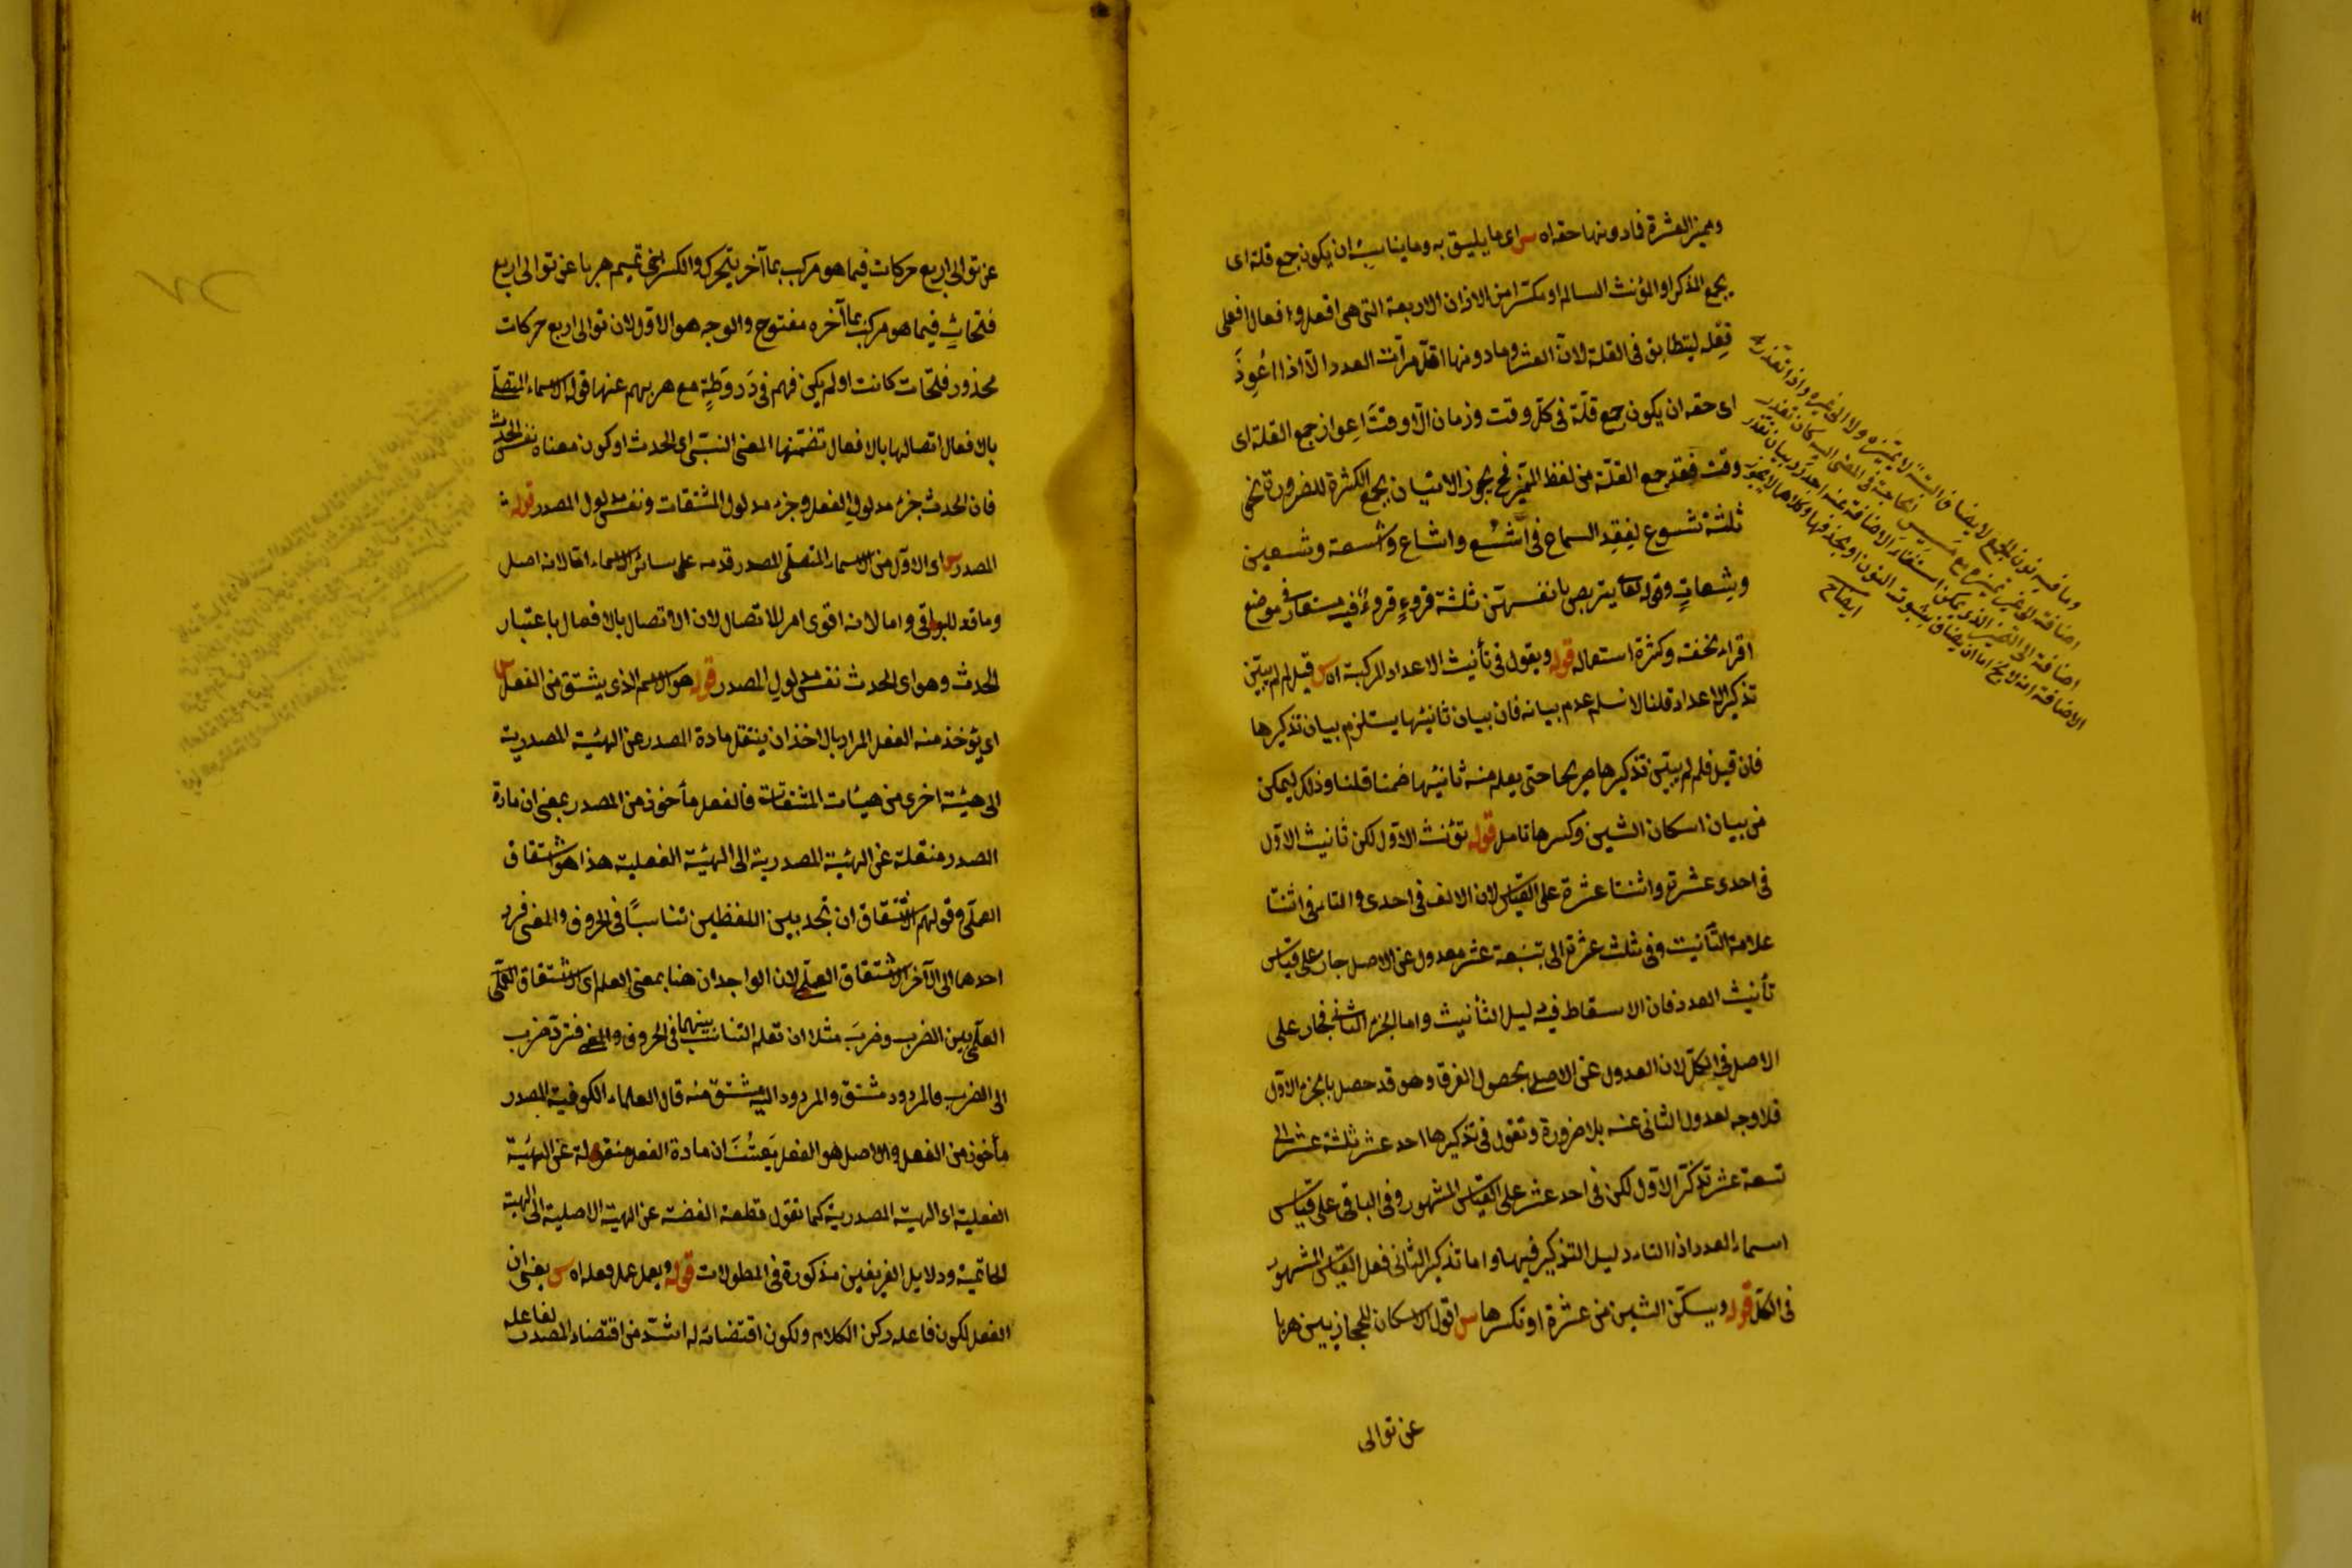 ومميز العشرة فما دونها حقه اه س اى ما يليق به وما يناسبه ان يكون جمع قلة اى
بجمع المذكر او المؤنث السالم او مكسّرا من الاوزان الاربعة التى هى افعل وافعال افعلى
فِعْله ليتطابق فى القلة لانّ العشر وما دونها اقلّ مرآت العدد الّا اذا اُعوِذَ
اى حقه ان يكون جمع قلّة فى كلّ وقت وزمان الّا وقتَ اِعواز جمع القلة اى
وقت فقد جمع القلّة من لفظ المميّز فح يجوز الاتيان بجمع الكثرة للضرورة نحو
ثلثة شسوع لفقد السماع فى اشسُع واشساع وشسعة وشسعين
وشسعاتٍ وقوله تعا يتربصن بانفسهنّ ثلثة قروءٍ قروءٌ فيه مستعار فى موضع
اقراء لخفته وكثرة استعماله قوله ويقول فى تأنيث الاعداد المركبة اه س قيل لم لم يبيّن
تذكير الاعداد قلنا لا نسلم عدم بيانه فان بيان تانيثها يستلزم بيان تذكيرها
فان قيل فلم لم يبيّن تذكيرها صريحا حتى يعلم منه ثانيثها ضمنا قلنا وذلك ليمكن
من بيان اسكان الشين وكسرها تامل قوله تؤنث الاوّل لكن ثانيث الاوّل
فى احدى عشرة واثنتا عشرة على القياس لان الالف فى احدى والتاء فى اثنتا
علامة التأنيث وفى ثلث عشرة الى تسعة عشر معدول عن الاصل جار على قياس
تأنيث العدد فان الاسقاط فيه دليل التأنيث واما الجزء الثانى فجار على
الاصل فى الكلّ لان العدول عن الاصل بحصول الفرق وهو قد حصل بالجزء الاوّل
فلا وجه لعدول الثانى عنه بلا ضرورة وتقول فى تذكيرها احد عشر ثلثة عشر الى
تسعة عشر تذكّر الاوّل لكن فى احد عشر على القياس المشهور وفى الباقى على قياس
اسماء العدد اذ التاء دليل التذكير فيها واما تذكير الثانى فعلى القياس المشهور
فى الكلّ قوله ويسكّن الشين من عشرة او تكسرها س اقول الاسكان للحجازيين هربا
عن توالى
وما فيه نون الجمع لا يضاف البتة لا بمميّزه ولا الى غيره واذا تعذر
اضافة الى غير تمييزه مع مسيس الحاجة فى المعنى اليه كان تعذر
اضافة الى التمييز الذى يمكن استغناء الاضافة عنه اجدر بيان تعذر
الاضافة انه لا يخ اما ان يضاف بثبوت النون او بحذفها وكلاهما لا يجوز
ايضاح
عن توالى اربع حركات فيما هو مركب بما آخر يتحرك والكسر لبنى تميم هربا عن توالى اربع
فتحاتٍ فيما هو مركب بما آخره مفتوح والوجه هو الاوّل لان توالى اربع حركات
محذور فتحات كانت او لم يكن فهم فى دَ دوَطةٍ مع هربهم عنها قوله الاسماء المتصلة
بالافعال اتصالها بالافعال تضمّنها المعنى النسبى اى الحدث او كون معناه نفس الحدث
فان الحدث جزء مدلول الفعل وجزء مدلول المشتقات ونفس مدلول المصدر قوله ث
المصدر س اى الاوّل من الاسماء المتصلة المصدر قدمه على سائر الاسماء امّا لانه اصل
وماقد للبواقى واما لانه اقوى امر للاتصال لان الاتصال بالافعال باعتبار
الحدث وهو اى الحدث نفس مدلول المصدر قوله هو الاسم الذى يشتق من الفعل س
اى يؤخذ منه الفعل المراد بالاخذ ان ينتقل مادة المصدر عن الهيئة المصدرية
الى هيئة اخرى من هيئات المشتقات فالفعل مأخوذ من المصدر بمعنى ان مادة
الصدر منقلة عن الهيئة المصدرية الى الهيئة الفعلية هذا هو اشتقاق
العملّى وقولهم الاشتقاق ان تجد بين اللفظين تناسبًا فى الحروف والمعنى فرد
احدهما الى الآخر الاشتقاق العلمى لان الواجدان هنا بمعنى العلم اى الاشتقاق العلّمى
العلمّى بين الضرب وضربَ مثلا ان تعلم التناسب بينهما فى الحروف والمعنى فتردّ ضرب
الى الضرب فالمردود مشتق والمردود اليه مشتق منه قال العلماء الكوفية المصدر
مأخوذ من الفعل والاصل هو الفعل يَعنُنَ ان مادة الفعل منقولة عن الهيئة
الفعلية اى الهيئة المصدرية كما تقول قطعة الفضة عن الهيئة الاصلية الى الهيئة
الخاتمية ودلايل الفريقين مذكورة فى المطولات قوله ويعمل عمل فعله اه س يعنى ان
الفعل لكون فاعله ركن الكلام ولكون اقتضائه له اشدّ من اقتضاء المصدر لفاعله